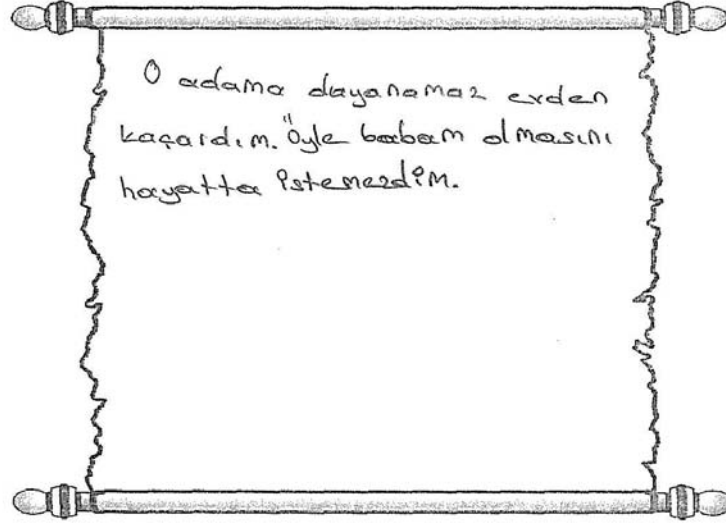 O adama dayanamaz evden
kaçardım. Öyle babam olmasını
hayatta istemezdim.